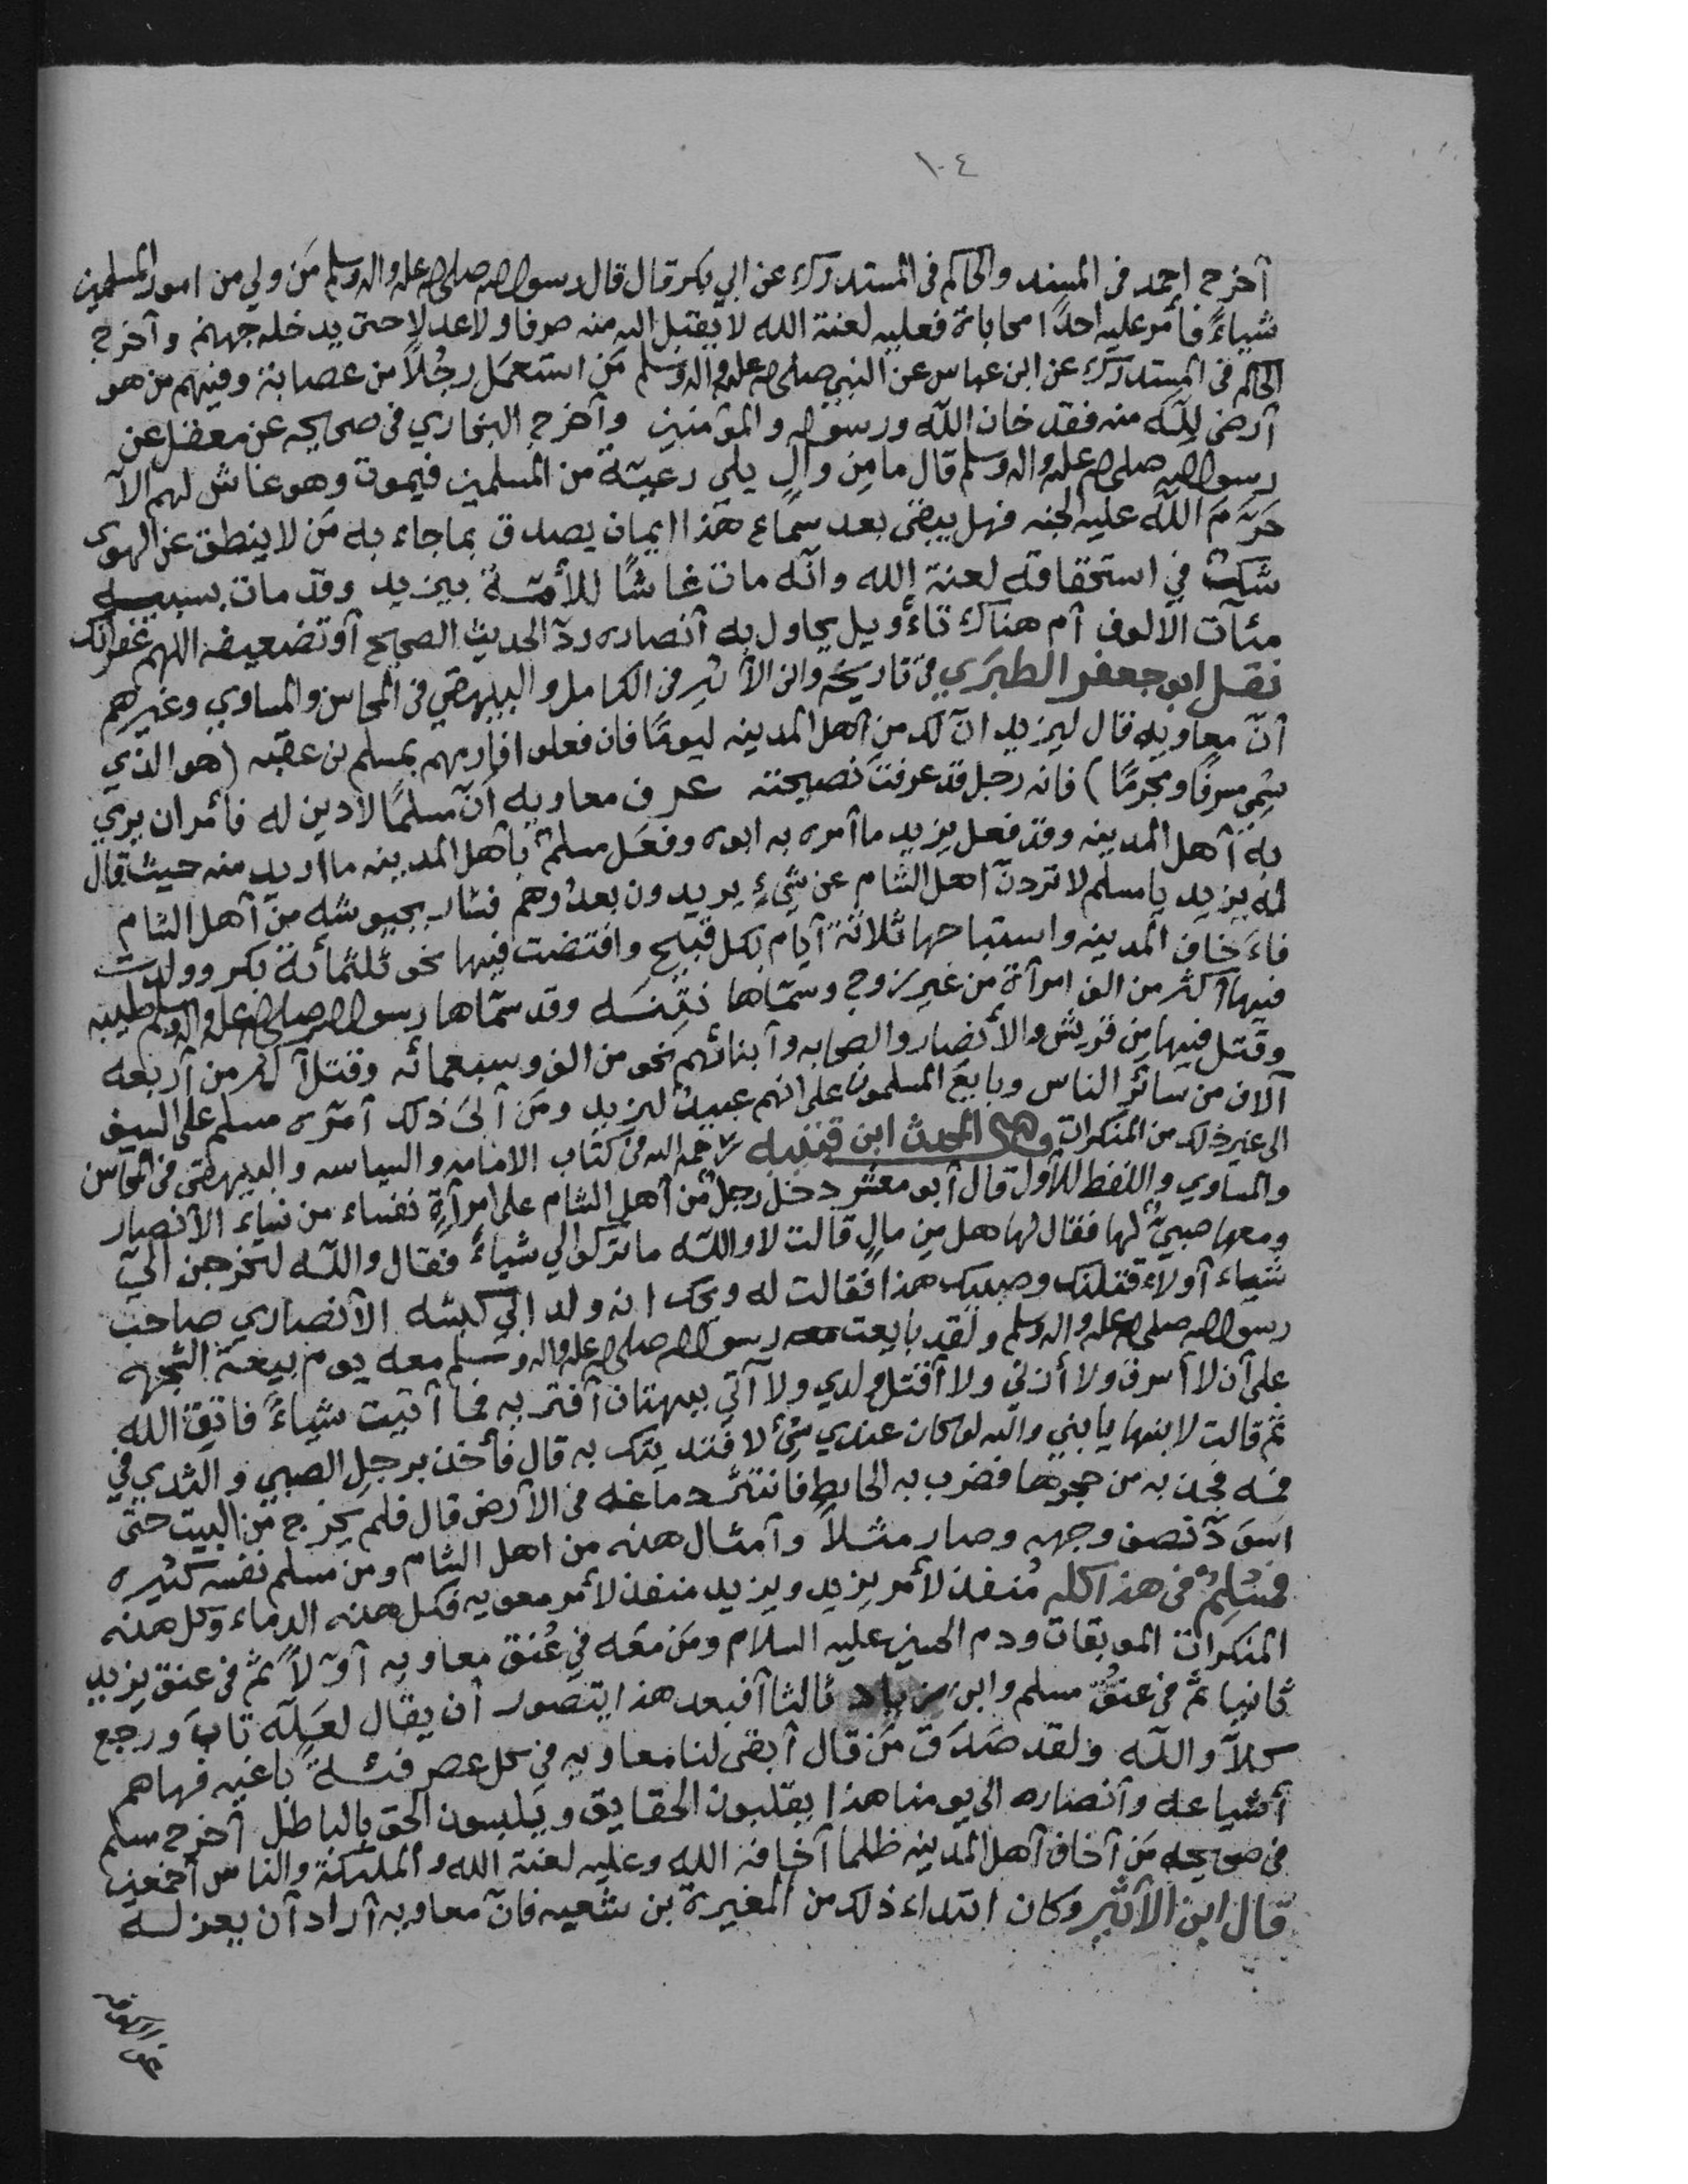 ١٠٤
آخرج احمد فى المسند والحاكم فى المستدرك عن ابي بكر قال قال رسول الله صلى الله عليه واله وسلم مَن ولي من امور المسلمين
شياءً فأمر عليه احدًا محاباة فعليه لعنة الله لا يقبل الله منه صرفا ولا عدلا حتى يدخله جهنم وآخرج
الحاكم فى المستدرك عن ابن عباس عن النبي صلى الله عليه واله وسلم مَن استعمَل رجُلاً من عصابة وفيهم من هو
آرضى لِلّه منه فقد خان اللّه ورسوله والمؤمنين وآخرج البخاري فى صحيحه عن معقل عن
رسول الله صلى الله عليه واله وسلم قال ما مِن والٍ يلي رعيّة من المسلمين فيموت وهو غاش لهم الآ
حَرّمَ اللّه عليه الجنه فهل يبقى بعد سمَاع هَذا ايمان يصدق بما جاء به مَن لا ينطق عن الهوى
شك في استحقاقه لعنة الله وانّه مات غاشًا للأمّة بيزيد وقد مات بسببه
مئآت الالوف آم هناك تاءويل يحاول به آنصاره ردّ الحديث الصحيح آو تضعيفه اللهم غفرانك
نقل ابو جعفر الطبَري فى تاريخه وابن الآثير فى الكامل والبيهقي فى المحاسن والمساوي وغيرهم
أنّ معاويه قال ليزيد انّ لك من آهل المدينه ليومًا فان فعلوا فارمهم بمسلم بن عقبه (هو الذي
سُمّي مسرفًا ومجرمًا) فانه رجل قد عرفت نصيحته عرف معاويه أنّ مسلمًا لا دين له فأمر ان يرمي
به آهل المدينه وقد فعل يزيد ما آمره به ابوه وفعَل مسلمٌ بآهل المدينه ما اريد منه حيث قال
له يزيد يا مسلم لا تردنّ آهل الشام عن شيءٍ يريدون بعدُوهم فسار بجيوشه من آهل الشام
فاءَخاف المدينه واستباحها ثلاثة آيام بكل قبيحٍ وافتضت فيها نحو ثلثمائة بكر وولدت
فيها آكثر من الف امرآة من غير زوج وسمّاها نتِنَه وقد سمّاها رسول الله صلى الله عليه واله وسلم طيبه
وقتل فيها مِن قريش والأنصار والصحابه وآبنائهم نحو من الف وسبعمائه وقتل آكثر من آربعه
آلاف من سائر الناس وبايعَ المسلمون على انهم عبيدٌ ليزيد ومَن آبىَ ذلك آمّره مسلم على السيف
الى غير ذلك من المنكرات وحكى المحدث ابن قتيبه رحمه الله فى كتاب الامامه والسياسه والبيهقي فى المحاسن
والمساوي واللفظ للآول قال آبو معشر دخل رجلٌ من آهل الشام على امرآةٍ نفساء من نساء الآنصار
ومعها صبيٌّ لها فقال لها هل مِن مالٍ قالت لا واللّه ما تركوا لي شياءً فقال واللّه لتخرجن الىّ
شياء آو لآءقتلنك وصبيك هذا فقالت له ويحك انه ولد ابي كبشه الآنصاري صاحب
رسول الله صلى الله عليه واله وسلم ولقد بايعت رسول الله صلى الله عليه واله وسلم معه يوم بيعة الشجره
على آن لا آسرق ولا أزني ولا آقتل ولدي ولا آتي ببهتان آفتريه فما آتيت شياءً فاتقِ الله
ثم قالت لابنها يا بني والله لو كان عندي شئٌ لافتديتك به قال فأخذ برجلِ الصبي والثدي في
فمه فجذبه من حجرها فضرب به الحايط فانتثر دماغه فى الارض قال فلم يخرج من البيت حتى
اسَودّ نصف وجهه وصار مثلاً وآمثال هذه من اهل الشام ومن مسلم نفسه كثيره
فمسُلِمٌ فى هذا كله مُنفذ لأمر يزيد ويزيد منفذ لأمر معويه فكل هذه الدماء وكل هذه
المنكرات الموبقات ودم الحسين عليه السلام ومَن معَه في عُنق معاويه آوّلاً ثم فى عنق يزيد
ثانيا ثم فى عنق مسلم وابن زياد ثالثا آفبعد هذا يتصور أن يقال لعَلّه تابَ ورجع
كلآ واللّه ولقد صَدَق مَن قال آبقى لنا معاويه في كل عصر فئةً باغيه فهاهم
أشياعه وآنصاره الى يومنا هذا يقلبون الحقايق ويَلبسون الحق بالباطل آخرج مسلم
فى صحيحه مَن آخاف آهل المدينه ظلما آخافه الله وعليه لعنة الله والملئكة والناس آجمعين
قال ابن الآثير وكان ابتداء ذلك من المغيرة بن شعبه فانّ معاويه آراد آن يعزله